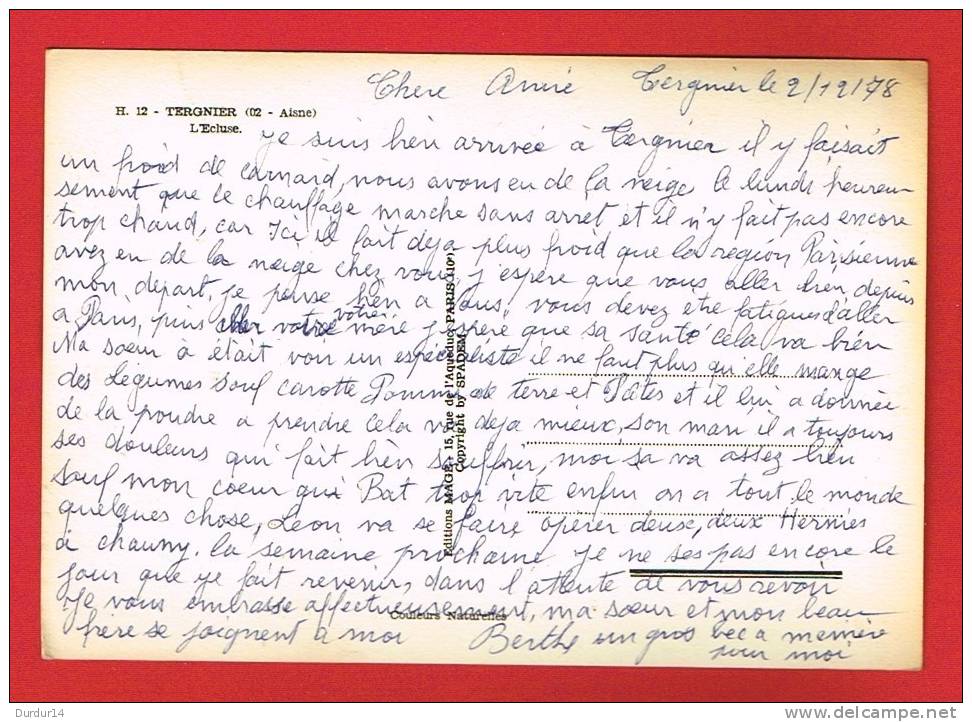 Chere Amie Tergnier le 2/12/78
H. 12 - TERGNIER (02 - Aisne)
L'Ecluse.
Je suis bien arrivée à Tergnier il y faisait
un froid de carnard, nous avons eu de la neige le lundi heureu
sement que le chauffage marche sans arret et il n'y fait pas encore
trop chaud, car Ici il fait deja plus froid que la region Parisienne
avez eu de la neige chez vous j'espère que vous aller bien, depuis
mon départ, je pense bien a vous, vous devez etre fatigues d'aller
a Paris, puis votre mère j'espère que sa santé cela va bien
Ma soeur à était voir un especialiste il ne faut plus qu'elle mange
des Légumes souf carotte Pomme de terre et Pâtes et il lui a donnée
de la poudre a prendre cela va deja mieux, son mari il a toujours
ses douleurs qui fait bien souffrir, moi sa va assez bien
souf mon coeur qui Bat trop vite enfin on a tout le monde
quelques chose, Leon va se faire opérer deux, deux Hernies
à chauny. la semaine prochaine je ne ses pas encore le
jour que je fait revenir, dans l'attente de vous revoir
Je vous embrasse affectueusement, ma soeur et mon beau
frère se joignent a moi Berthe un gros bec a memère
pour moi
Editions MAGE - 15, rue de l'Aqueduc, PARIS (10e)
Copyright by SPADEM
Couleurs Naturelles
Durdur14
www.delcampe.net